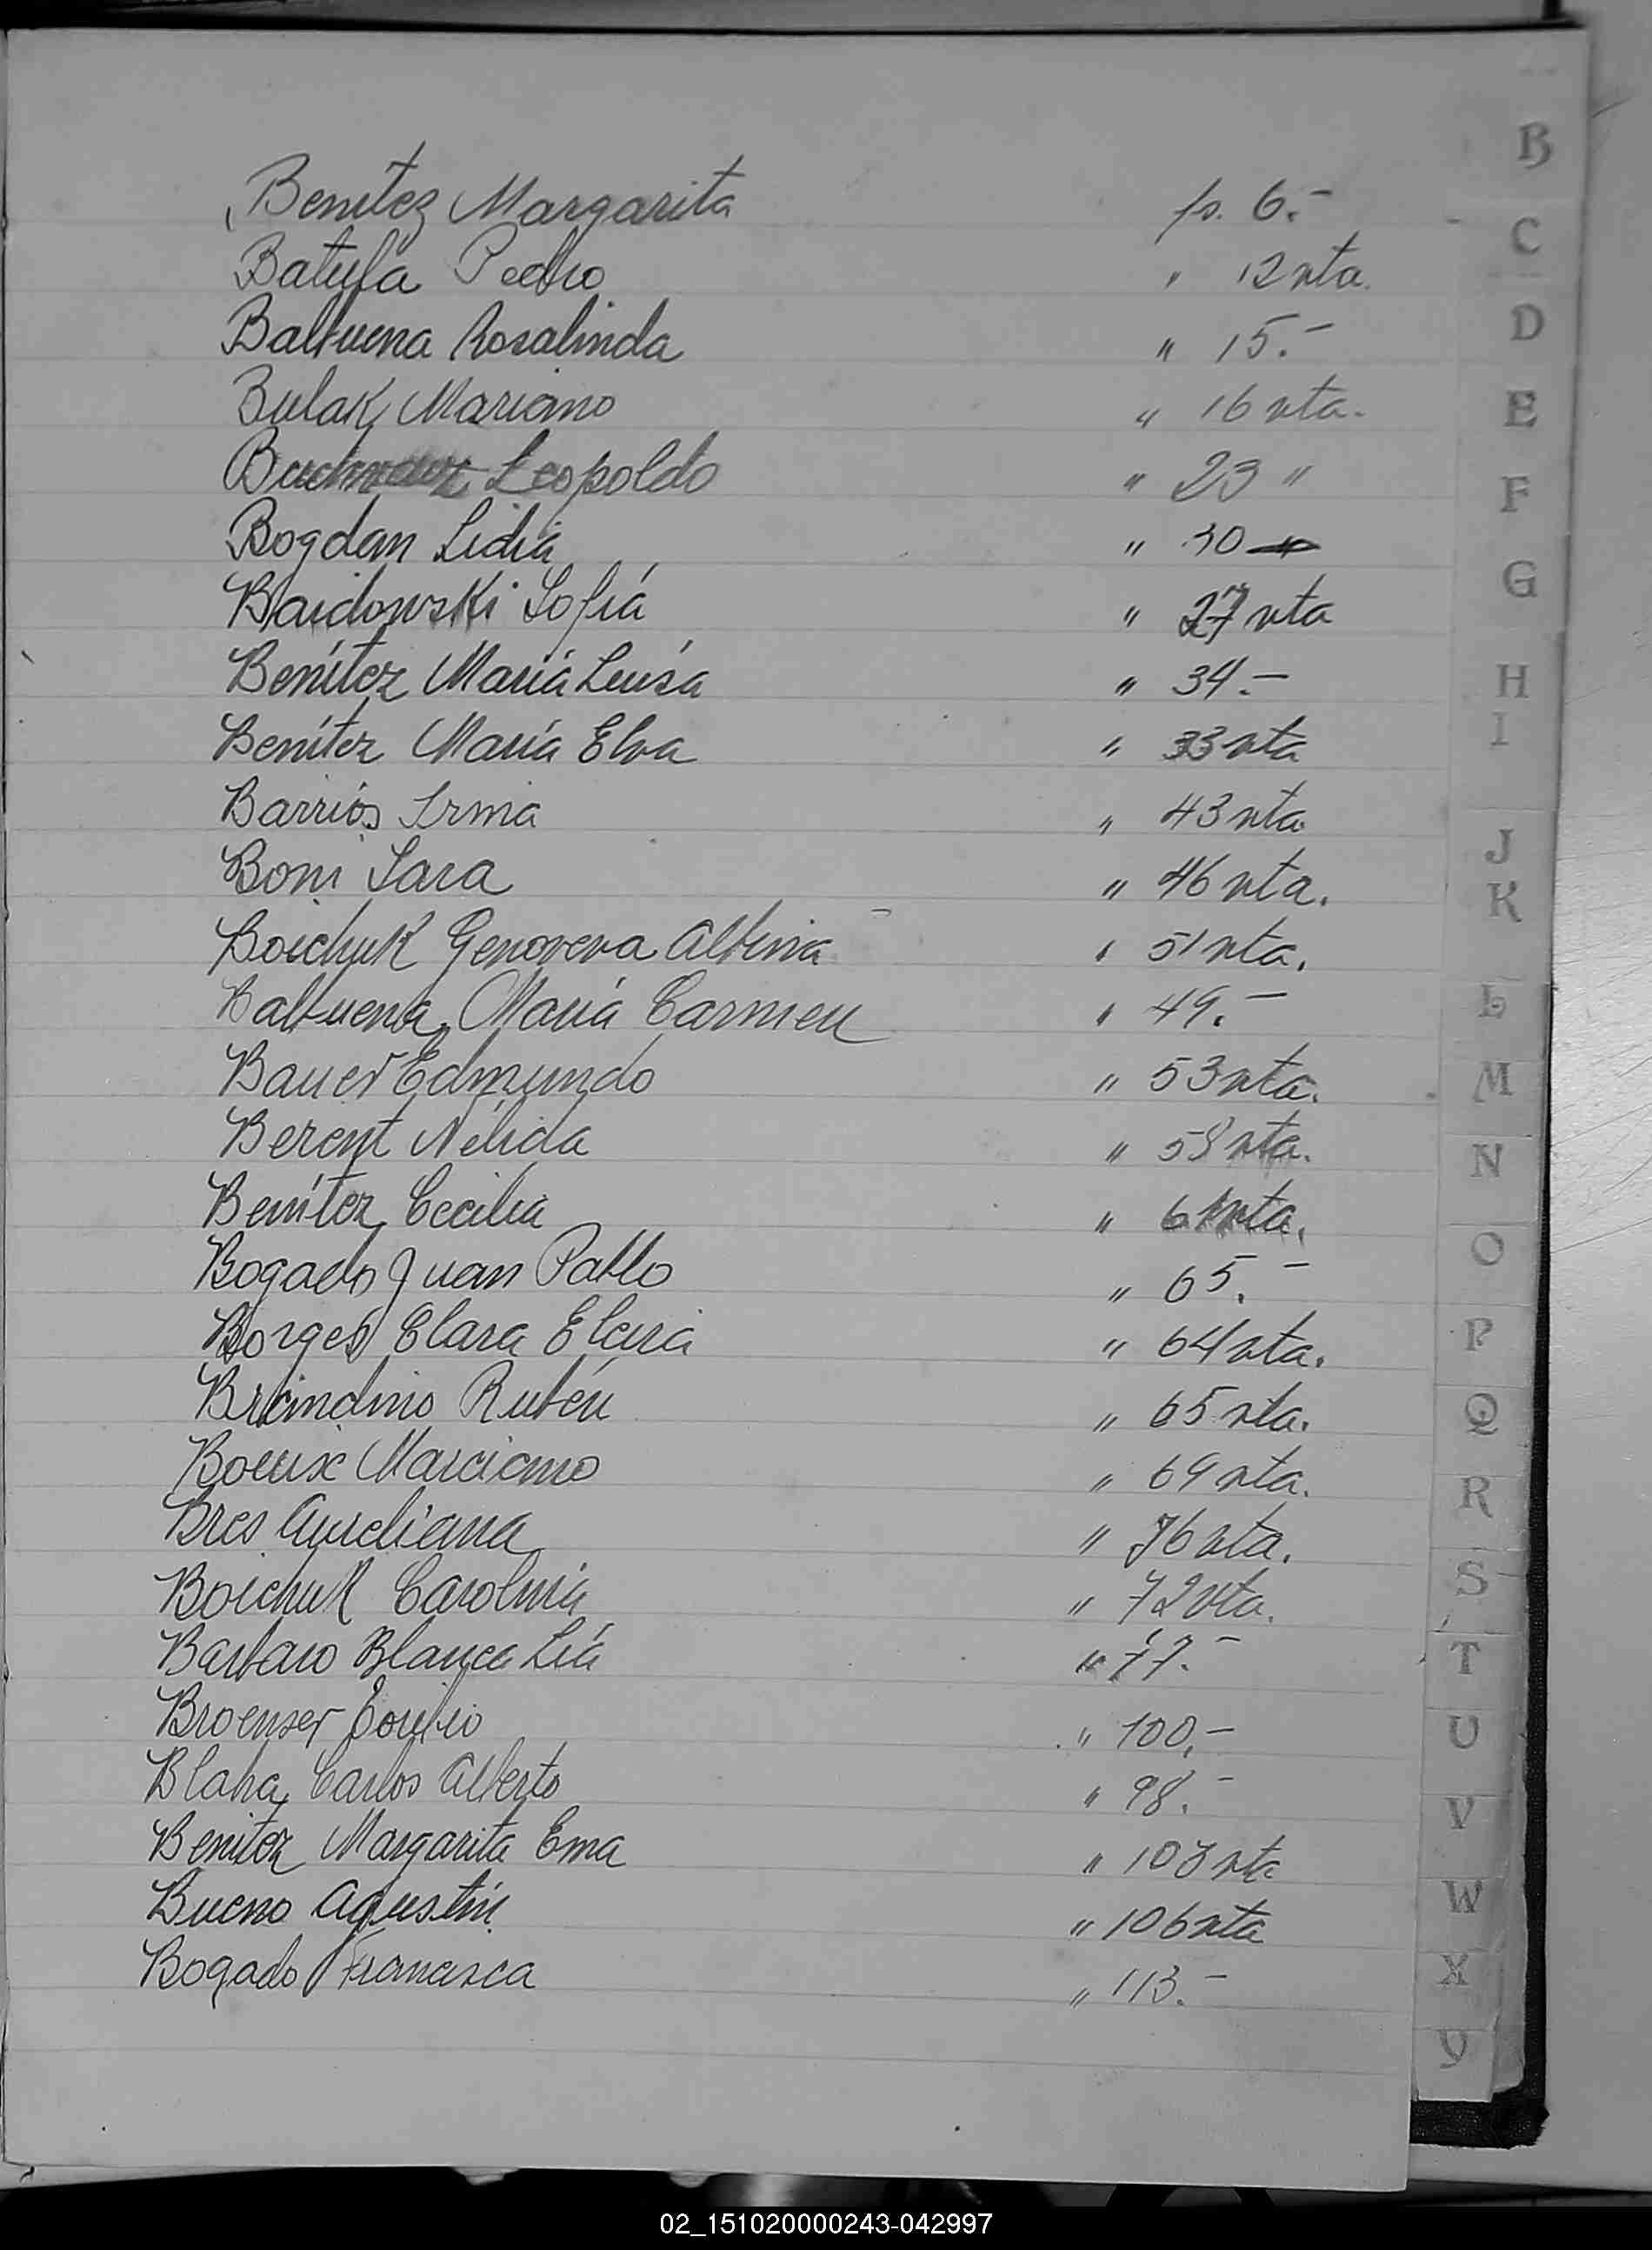 B
Benítez Margarita fs. 6.-
C
Batufa Pedro " 12 vta.
D
Balbuena Rosalinda " 15.-
E
Bulak Mariano " 16 vta.
F
Leopoldo " 23 "
Bogdan Lidia " 30
G
Baidowski Sofía " 27 vta
H
Benítez María Luisa " 34.-
I
Benítez María Elva " 33 vta
Barrios Irma " 43 vta.
J
Boni Sara " 46 vta.
K
Boichuk Genoveva Albina " 51 vta.
L
Balbuena María Carmen " 49.-
M
Bauer Edmundo " 53 vta.
N
Berent Nélida " 58 vta.
Benítez Cecilia " 61 vta.
O
Bogado Juan Pablo " 65.-
P
Borges Clara Elena " 64 vta.
Q
Brandino Rubén " 65 vta.
Boeux Marciano " 69 vta.
R
Bres Aureliana " 76 vta.
S
Boichuk Carolina " 72 vta.
T
Barbaro Blanca Lía " 77.-
U
Broenser Emilio " 100,-
Blaha Carlos Alberto " 98.-
V
Benítez Margarita Ema " 103 vta
W
Bueno Agustín " 106 vta
X
Bogado Francisca " 113.-
Y
02_151020000243-042997